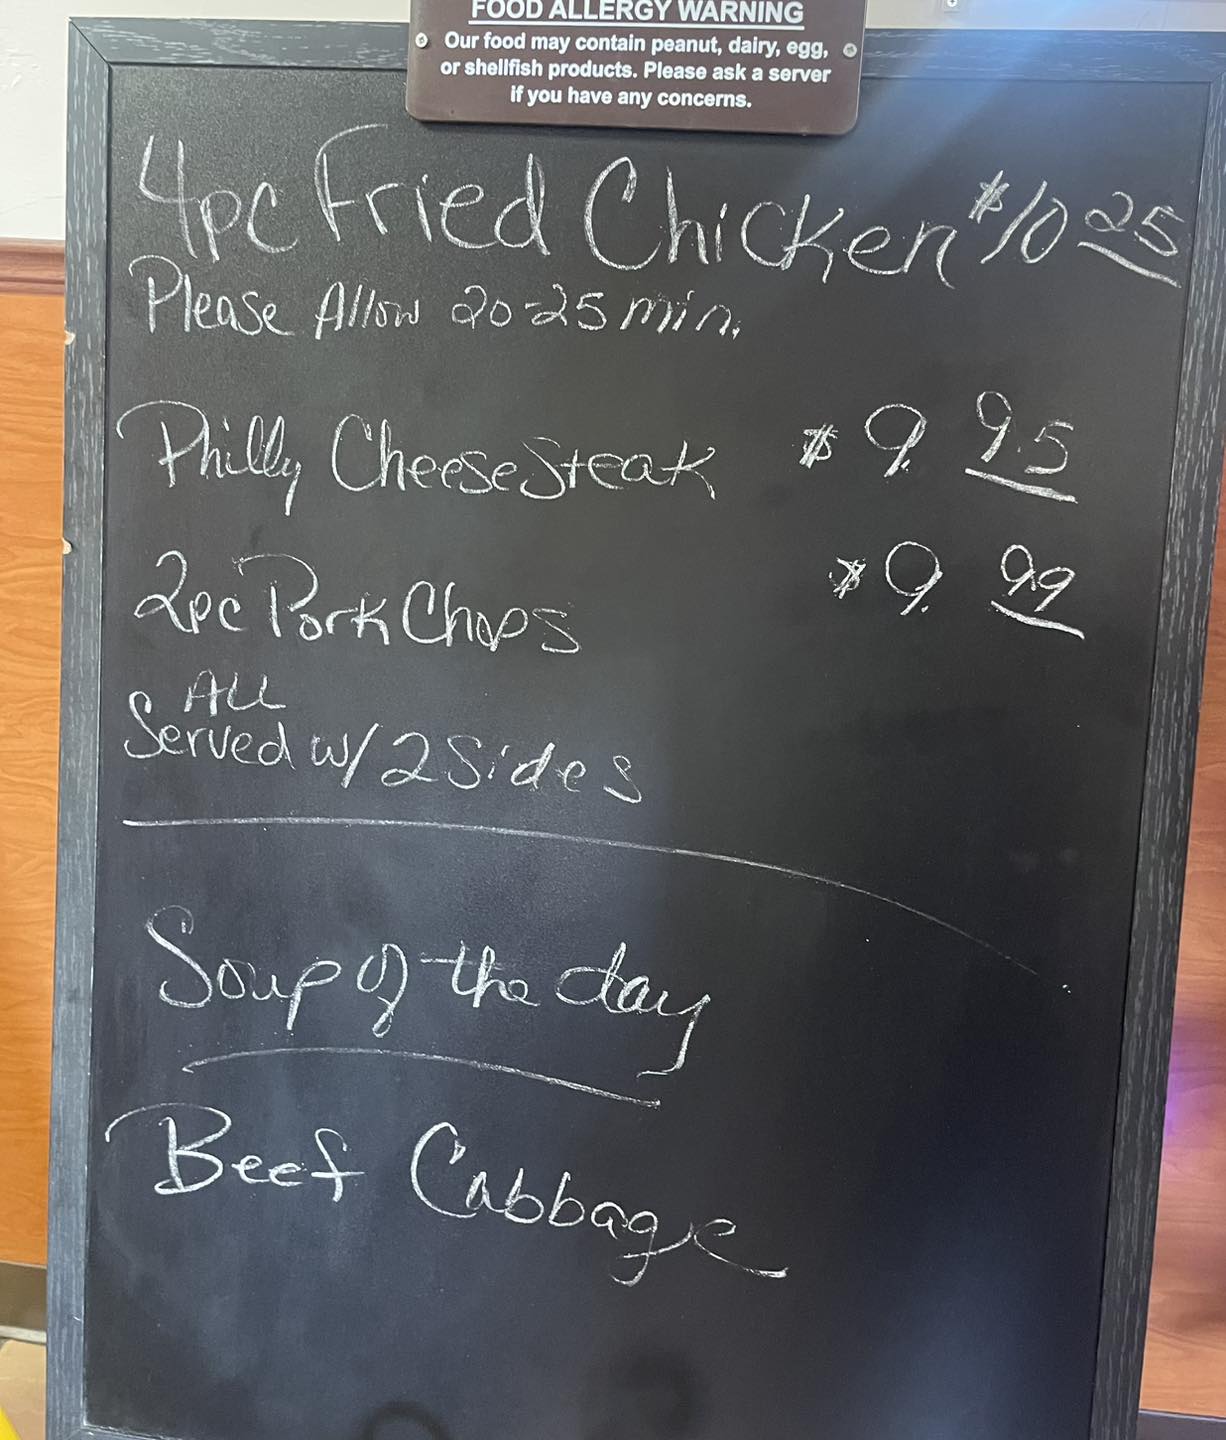 FOOD ALLERGY WARNING
Our food may contain peanut, dairy, egg,
or shellfish products. Please ask a server
if you have any concerns.
4pc Fried Chicken $10 25
Please Allow 20-25 min.
Philly CheeseSteak $9. 95
2pc Pork Chops $9. 99
ALL
Served w/ 2 Sides
Soup of the day
Beef Cabbage